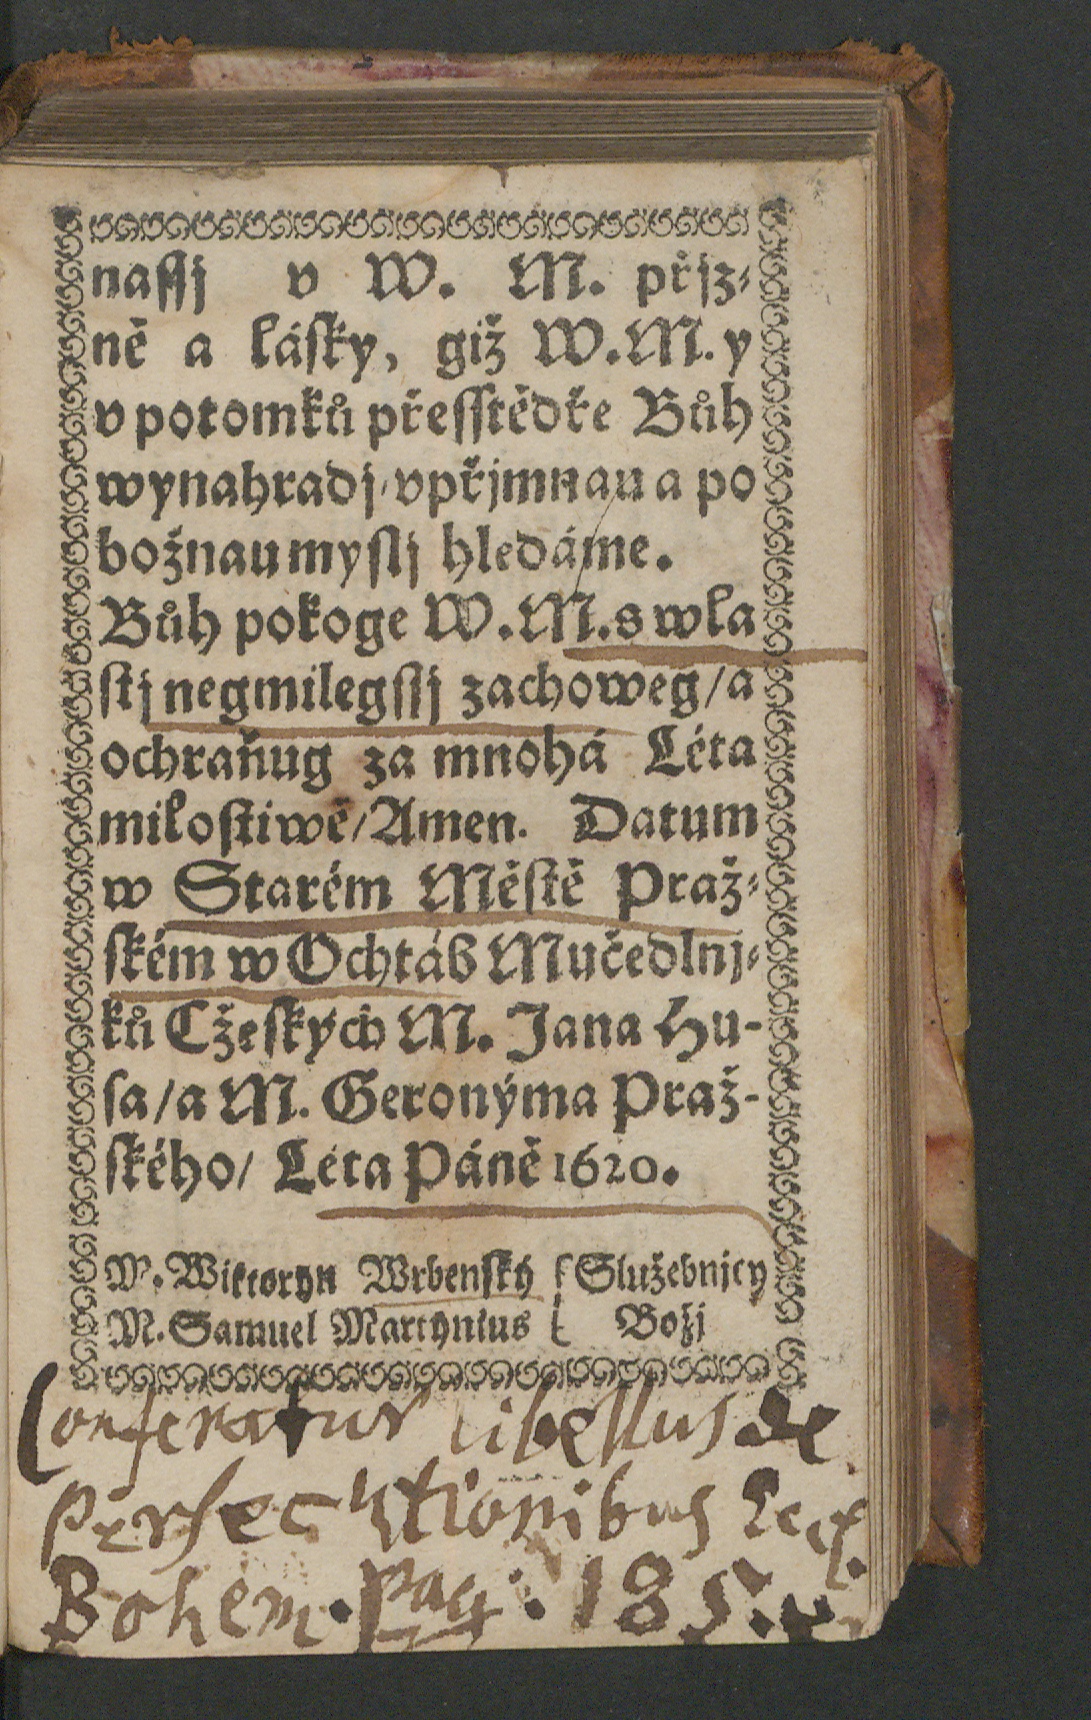 naſſj v W. M. přjz-
ně a láſky, giž W. M. y
v potomků přeſſtědře Bůh
wynahradj, vpřjmnau a po
božnau myſlj hledáme.
Bůh pokoge W. M. s wla
ſtj negmilegſſj zachoweg / a
ochraňug za mnohá Léta
miloſtiwě / Amen. Datum
w Starém Měſtě Praž-
ſkém w Ochtáb Mučedlnj-
ků Cžeſkých M. Jana Hu-
ſa / a M. Geronýma Praž-
ſkého / Léta Páně 1620.
M. Wiktoryn Wrbenſký { Služebnjcy
M. Samuel Martynius { Božj
Conferatur libellus de
Persecutionibus Eccl.
Bohem. Pag: 185.